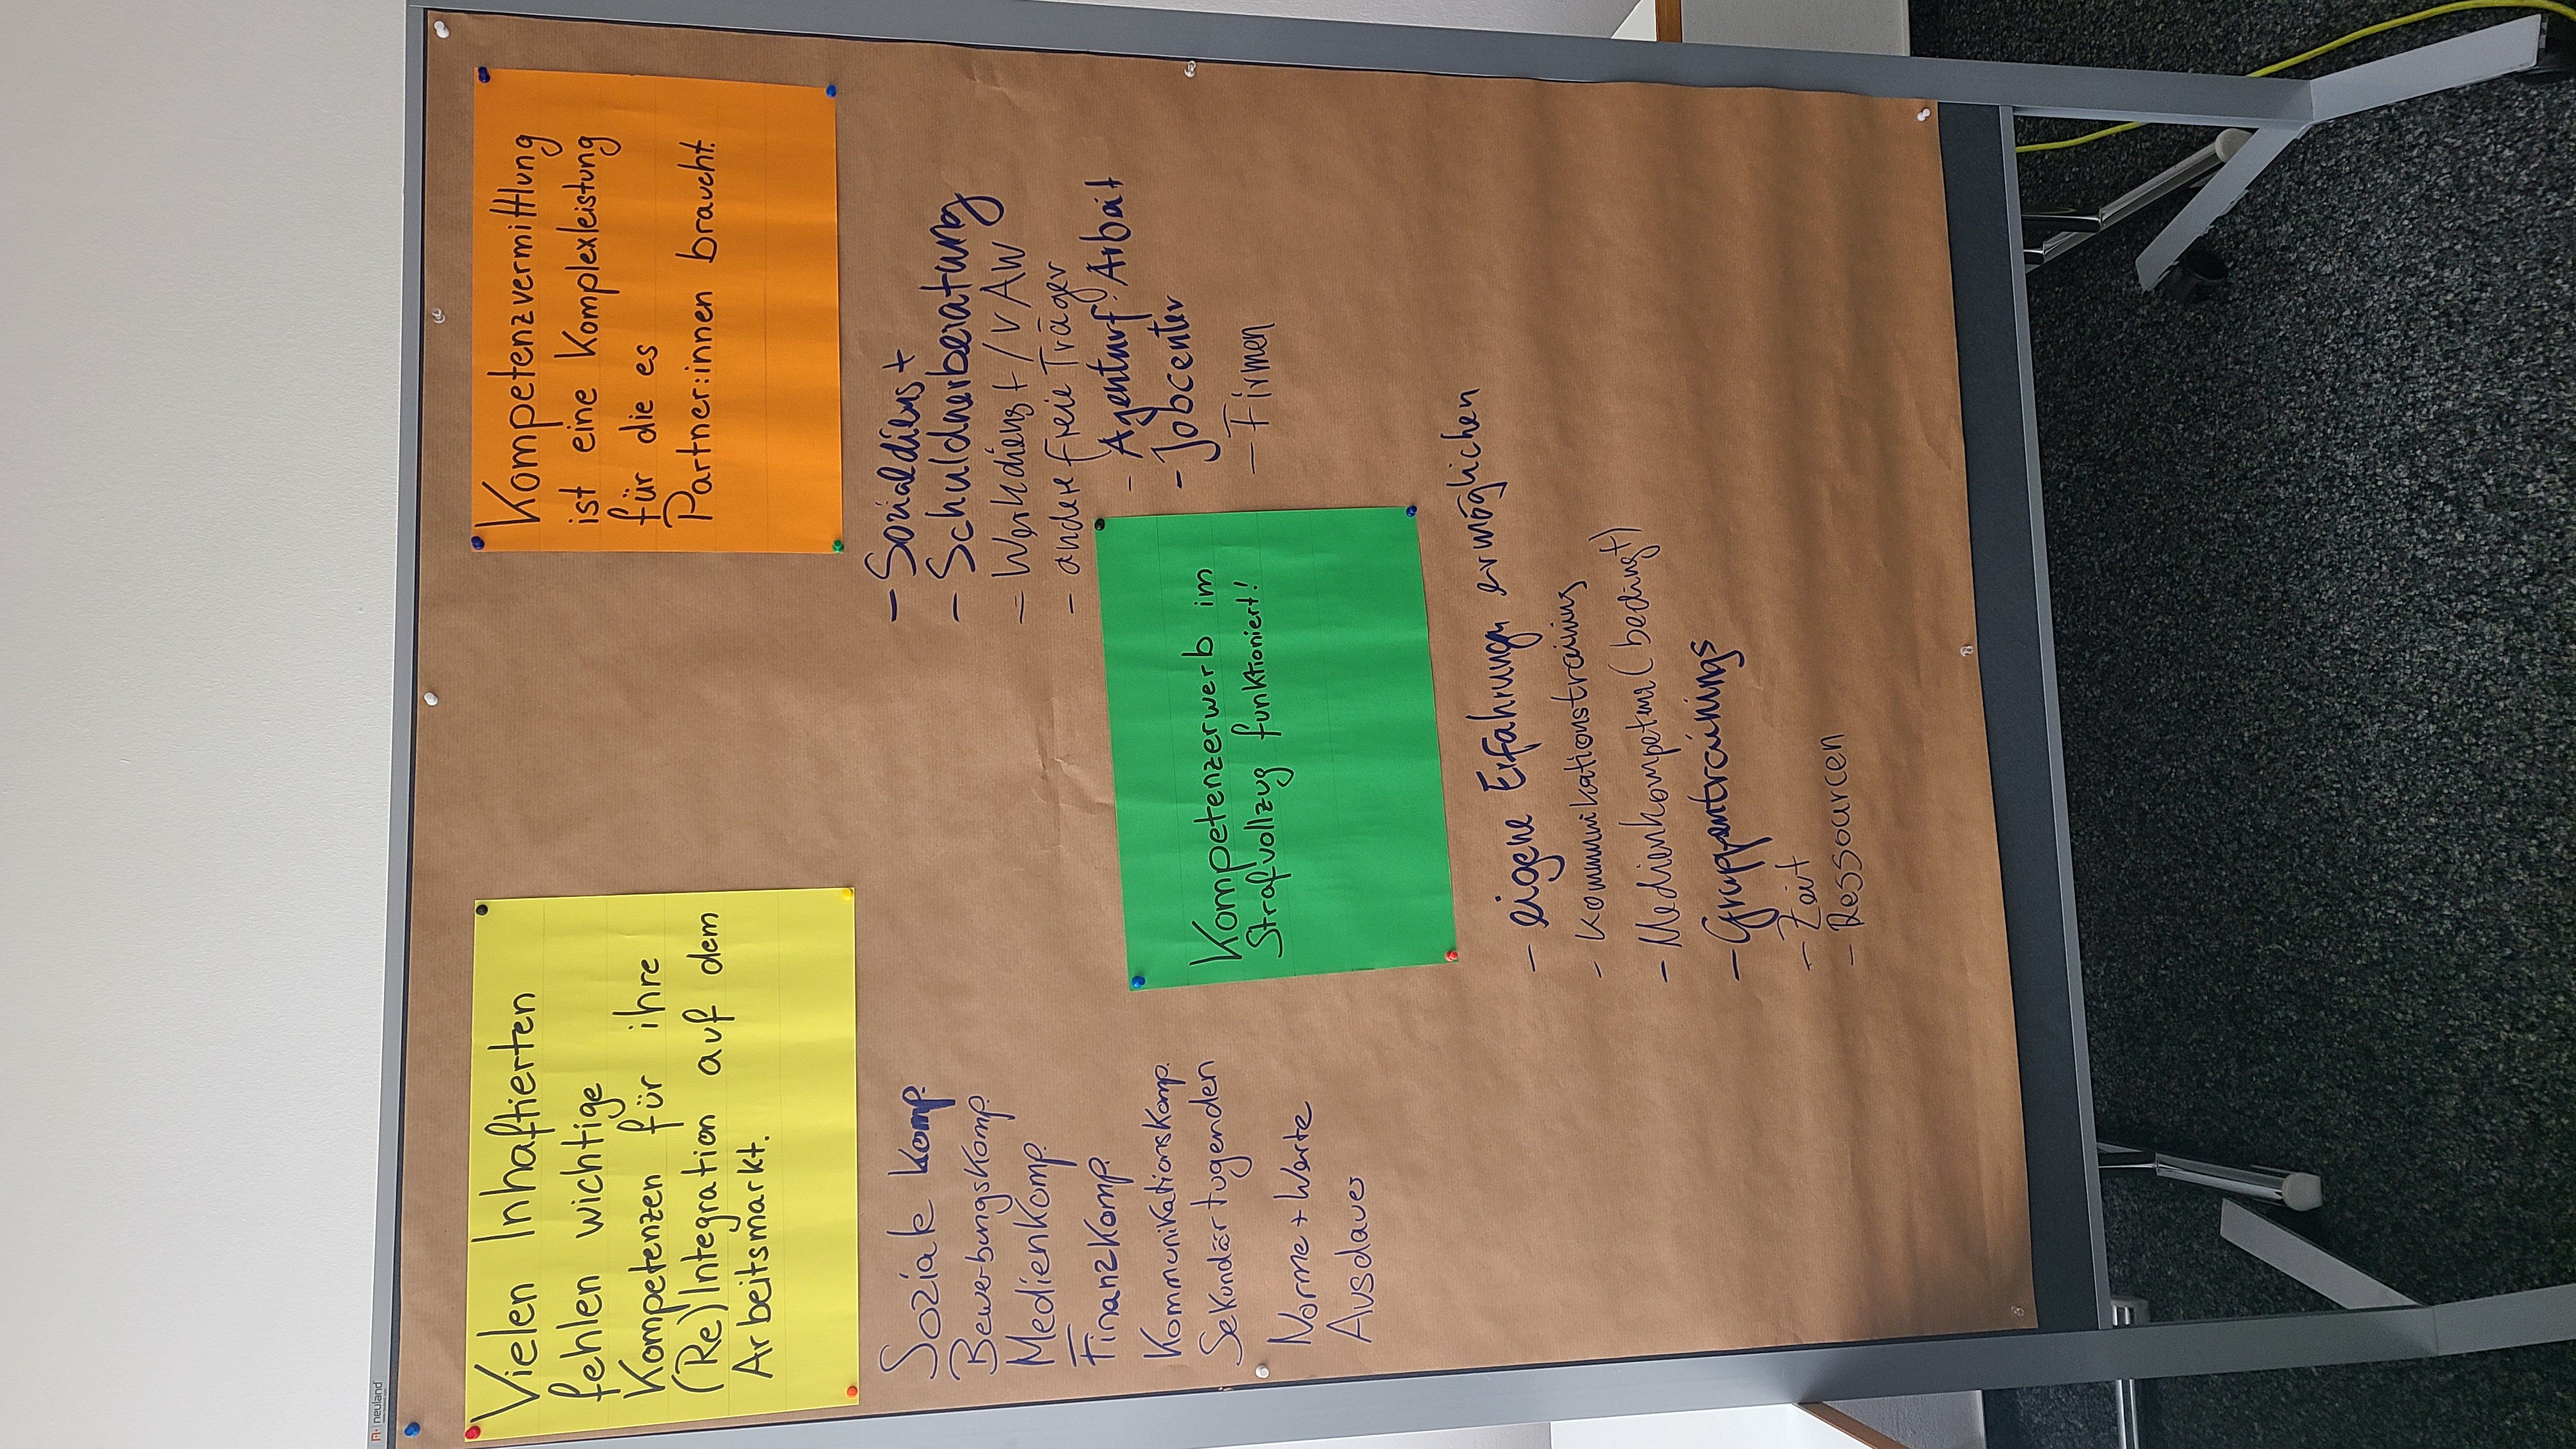 neuland
Vielen Inhaftierten
fehlen wichtige
Kompetenzen für ihre
(Re)Integration auf dem
Arbeitsmarkt.
Soziale Komp.
Bewerbungskomp.
Medienkomp.
Finanzkomp.
Kommunikationskomp.
Sekundärtugenden
Norme + Werte
Ausdauer
Kompetenzvermittlung
ist eine Komplexleistung
für die es
Partner:innen braucht.
- Sozialdienst
- Schuldnerberatung
= Werkdienst / VAW
- andere freie Träger
- Agentur f. Arbeit
- Jobcenter
- Firmen
Kompetenzerwerb im
Strafvollzug funktioniert!
- eigene Erfahrungen ermöglichen
- Kommunikationstraining
- Medienkompetenz (bedingt)
- Gruppentrainings
- Zeit
- Ressourcen